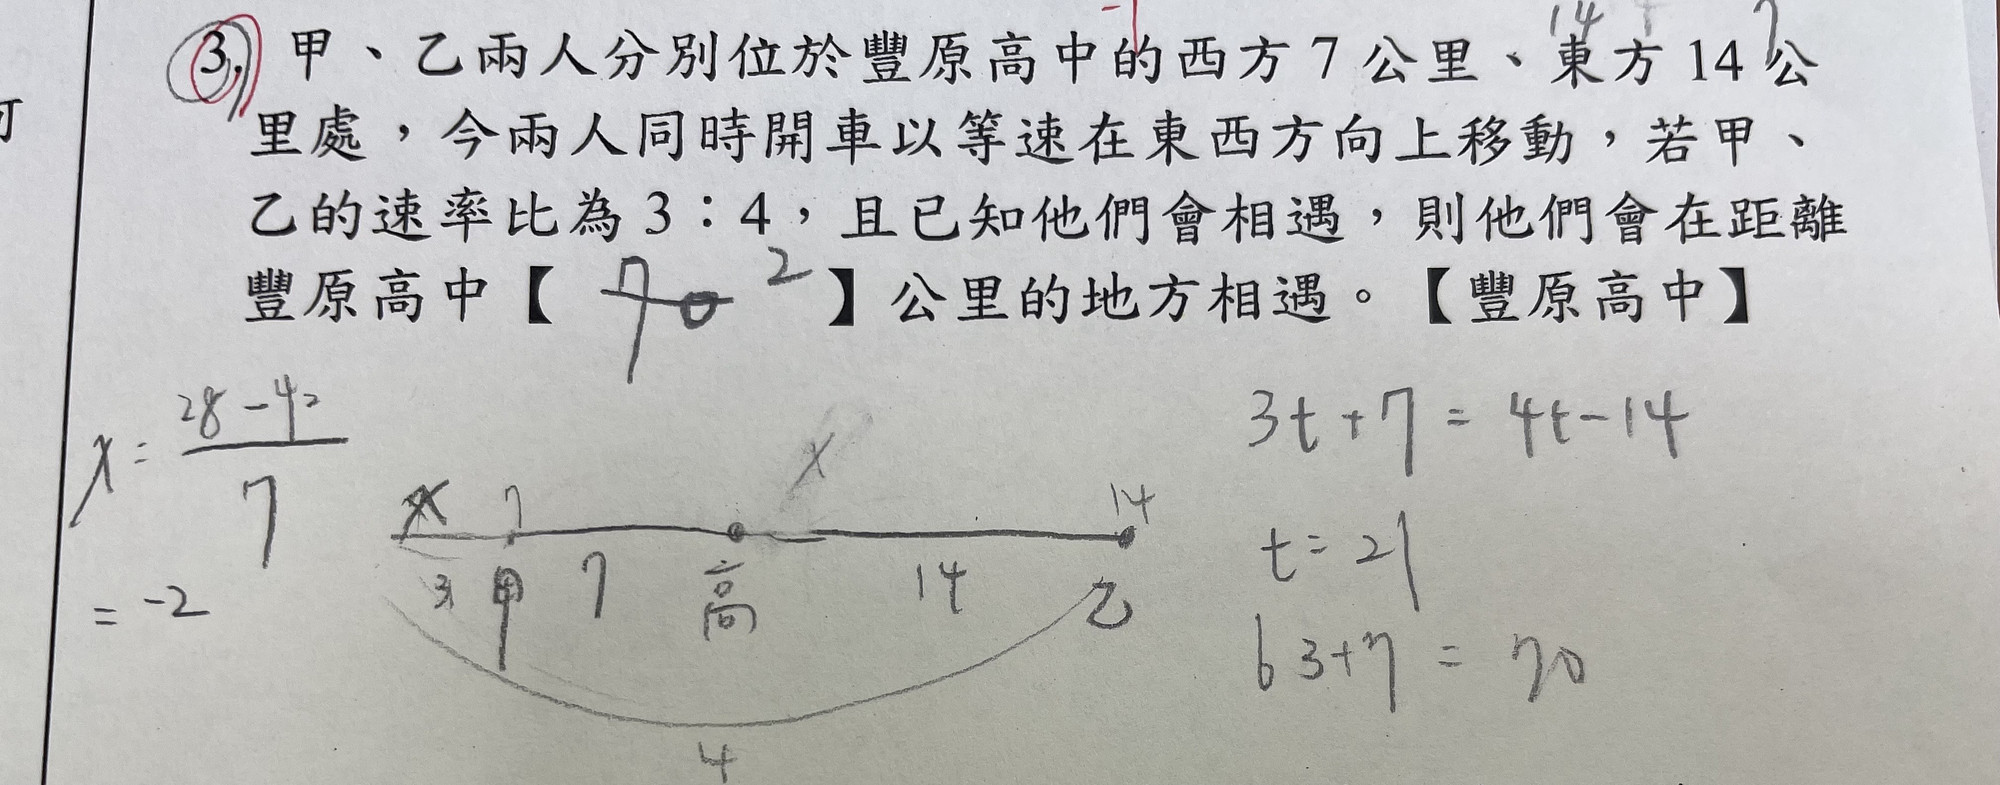 14 7
3. 甲、乙兩人分別位於豐原高中的西方 7 公里、東方 14 公
里處，今兩人同時開車以等速在東西方向上移動，若甲、
乙的速率比為 3：4，且已知他們會相遇，則他們會在距離
豐原高中【 70 2 】公里的地方相遇。【豐原高中】
x = 28-42 / 7
= -2
x 7 x 14
3 甲 7 高 14 乙
4
3t+7 = 4t-14
t = 21
63+7 = 70